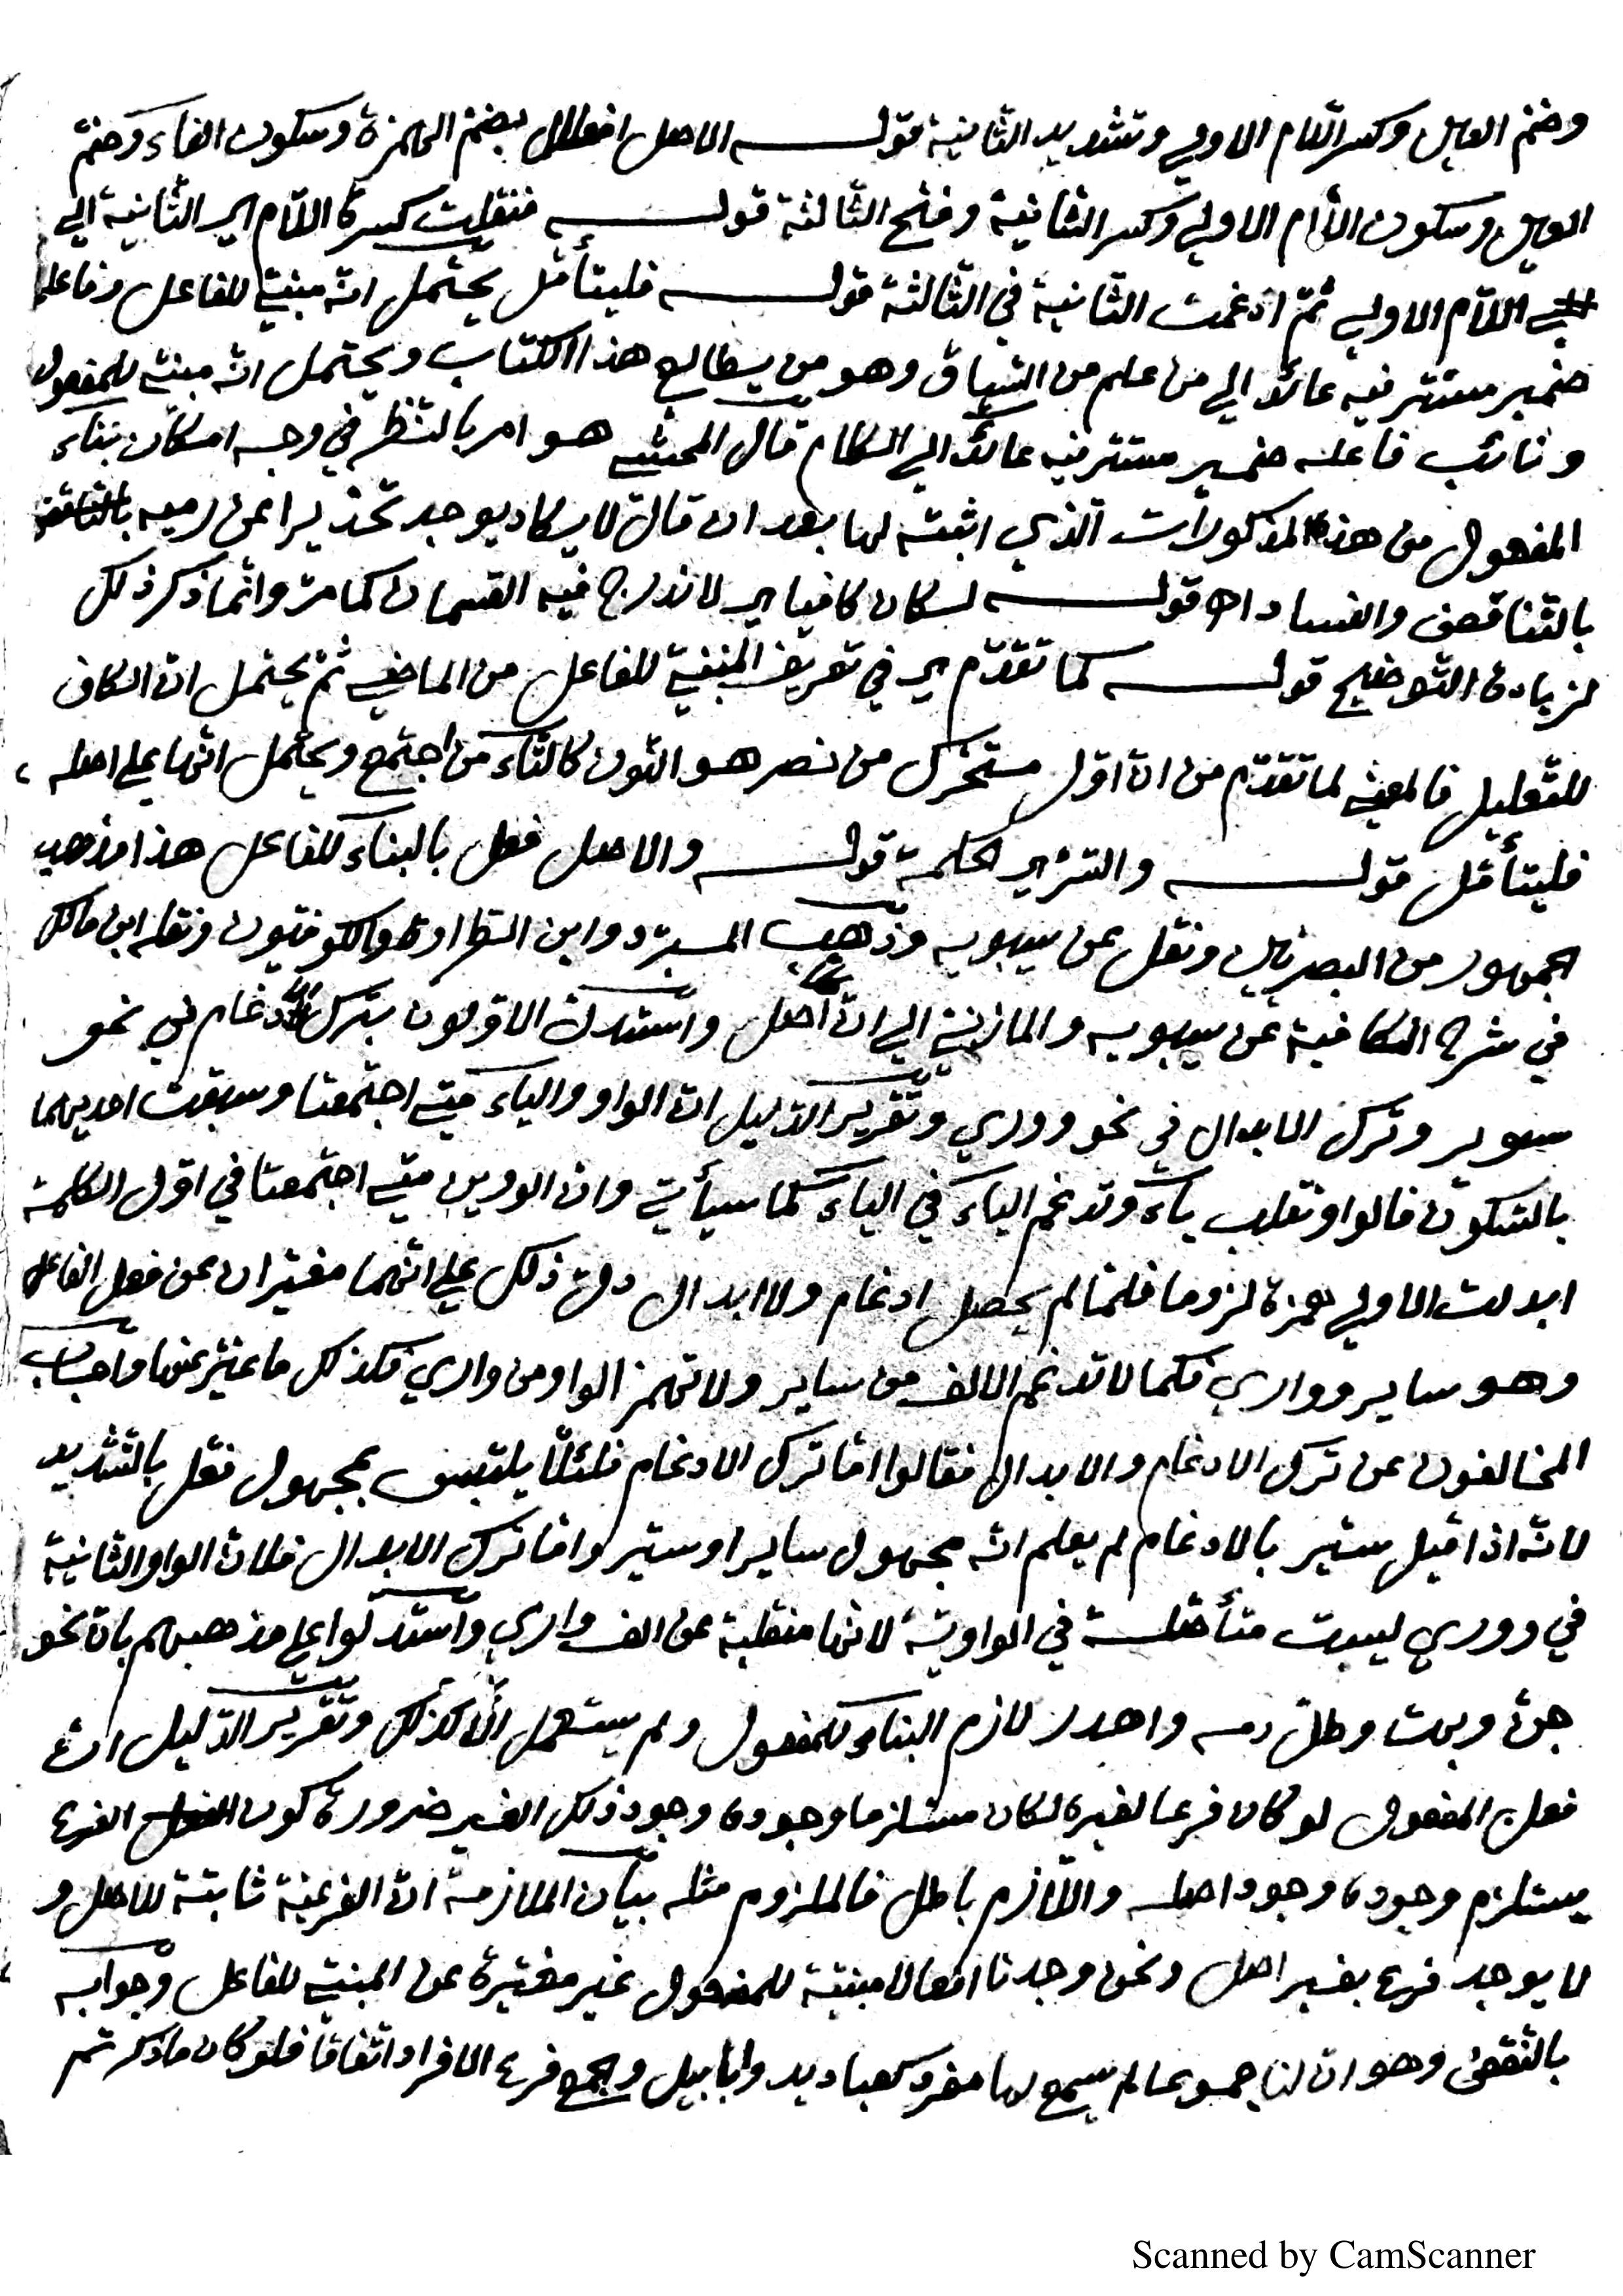 وضم العين وكسر اللام الاولي وتشديد الثانية قوله الاصل افعلل بضم الهمزة وسكون الفاء وضم
العين وسكون اللام الاولي وكسر الثانية وفتح الثالثة قوله فنقلت كسرة اللام اي الثانية الي
اللام الاولي ثم ادغمت الثانية في الثالثة قوله فليتأمل يحتمل انه مبني للفاعل وفاعله
ضمير مستتر فيه عائد الي من علم من السياق وهو من يطالع هذا الكتاب ويحتمل انه مبني للمفعول
ونائب فاعله ضمير مستتر فيه عائد الي الكلام قال المحشي هو امر بالنظر في وجه امكان بناء
المفعول من هذه المذكورات الذي اثبته لها بعد ان قال لا يكاد يوجد تحذيرا عن رميه
بالتناقض والفساد اه قوله لكان كافيا اي لاندراج فيه القسمان كما مر وانما ذكر ذلك
لزيادة التوضيح قوله كما تقدم اي في تعريف المبني للفاعل من الماضي ثم يحتمل ان الكاف
للتعليل فالمعني لما تقدم من ان اول متحرك من نصر هو النون كالتاء من اجتمع ويحتمل انها علي اصله
فليتأمل قوله والتزير لحكمة قوله والاصل فعل بالبناء للفاعل هذا مذهب
الجمهور من البصريين ونقل عن سيبويه وذهب المبرد وابن الطراوة والكوفيون ونقله ابن مالك
في شرح الكافية عن سيبويه والمازني الي ان اصل واستدل الاولون بترك الادغام في نحو
سوير وترك الابدال في نحو ووري وتقرير الدليل ان الواو والياء متي اجتمعتا وسبقت احديهما
بالسكون فالواو تقلب ياء وتدغم الياء في الياء كما سيأتي وان الووين متي اجتمعتا في اول الكلمة
ابدلت الاولي همزة لزوما فلما لم يحصل ادغام ولا ابدال دل ذلك علي انهما مغيران عن فعل الفاعل
وهو ساير وواري فكما لا تدغم الالف من ساير ولا تهمز الواو من واري فكذلك ما غير عنها واجاب
المخالفون عن ترك الادغام والابدال فقالوا اما ترك الادغام فلئلا يلتبس بمجهول فعل بالتشديد
لانه اذا قيل سير بالادغام لم يعلم انه مجهول ساير او سير واما ترك الابدال فلان الواو الثانية
في ووري ليست متأصلة في الواوية لانها منقلبة عن الف واري واستدلوا علي مذهبهم بان نحو
جن وبهت وطل دمه واهدر لازم البناء للمفعول ولم يستعمل الا كذلك وتقرير الدليل ان
فعل المفعول لو كان فرعا لغيره لكان مستلزما وجوده وجود ذلك الغير ضرورة كون الفرع
يستلزم وجوده وجود اصله واللازم باطل فالملزوم مثله بيان الملازمة ان الفرعية ثابتة للاصل و
لا يوجد فرع بغير اصل ونحن وجدنا افعالا مبنية للمفعول غير مغيرة عن المبني للفاعل وجوابه
بالنقض وهو ان لنا جموعا لم يسمع لها مفرد كعباديد وابابيل والجمع فرع الافراد اتفاقا فلو كان ما ذكرتم
Scanned by CamScanner